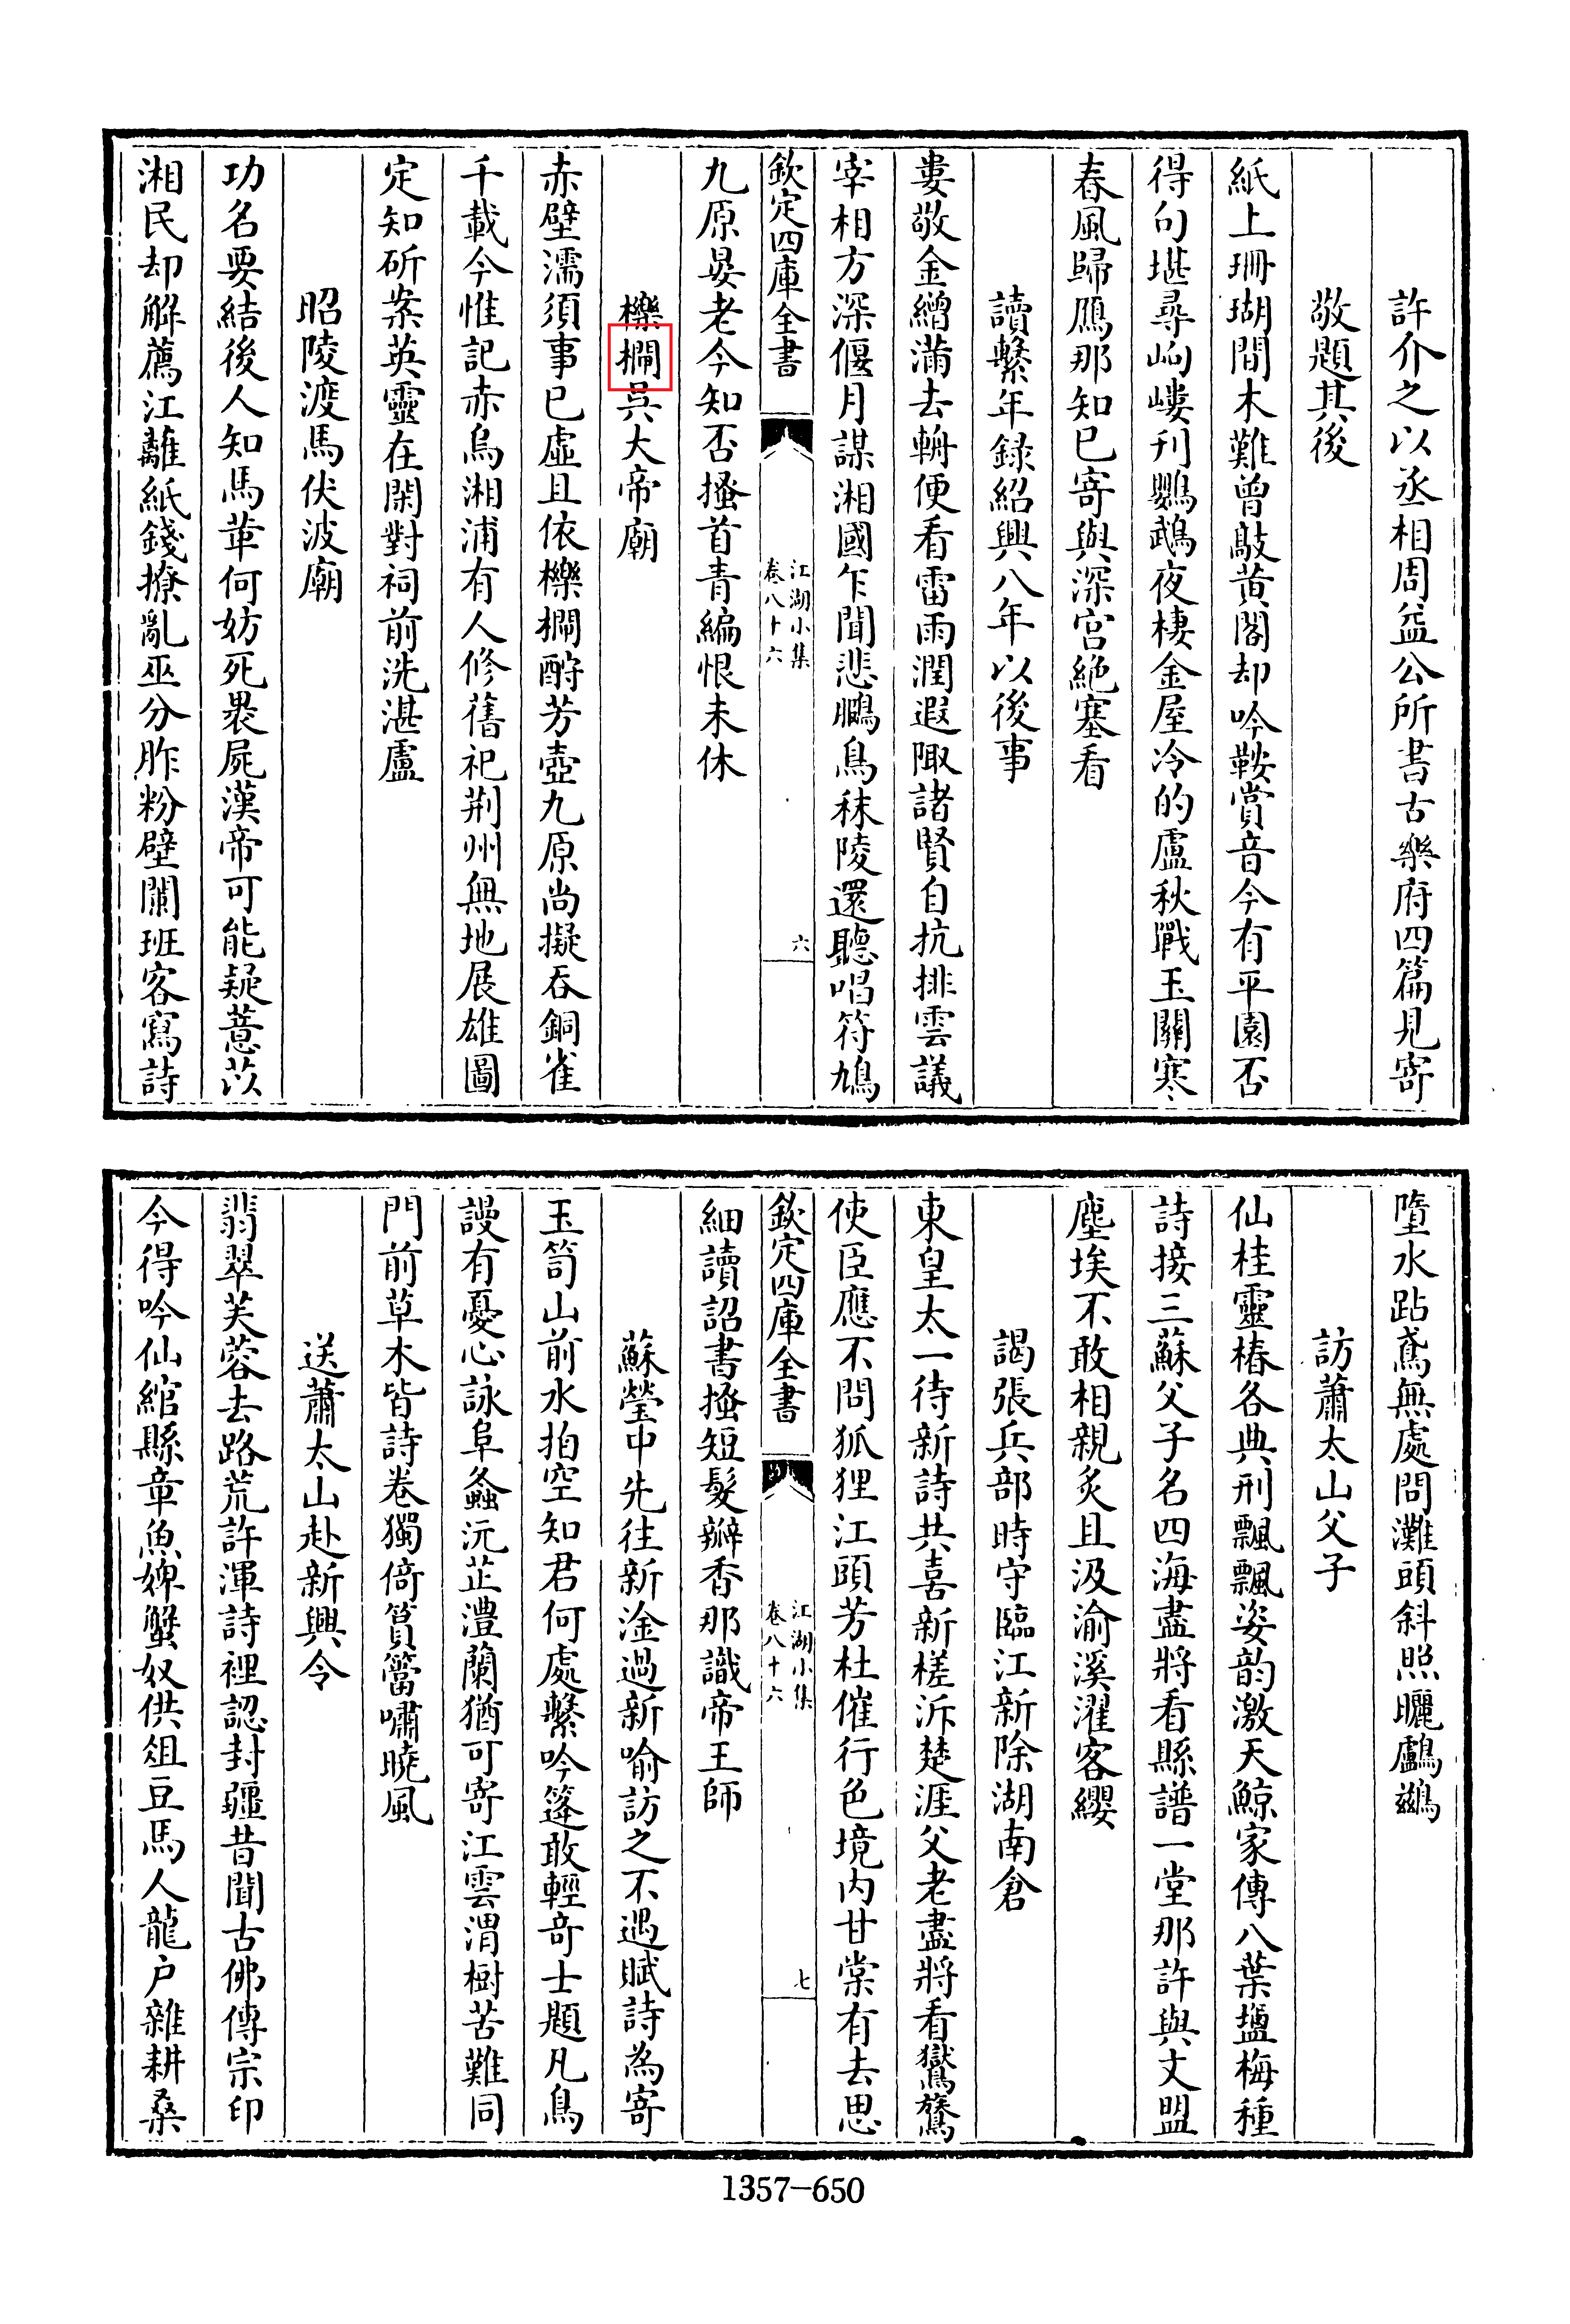 許介之以丞相周益公所書古樂府四篇見寄
敬題其後
紙上珊瑚間木難曽敲黄閣却吟鞍賞音今有平園否
得句堪尋岣嶁刋鸚鵡夜棲金屋冷的盧秋戰玉關寒
春風歸鴈那知已寄與深宫絶塞看
讀繫年録紹興八年以後事
婁敬金繒滿去輈便看雷雨潤遐陬諸賢自抗排雲議
宰相方深偃月謀湘國乍聞悲鵩鳥秣陵還聽唱符鳩
欽定四庫全書
江湖小集
卷八十六
六
九原晏老今知否搔首青編恨未休
櫟橺吳大帝廟
赤壁濡須事已虚且依櫟橺酹芳壺九原尚擬吞銅雀
千載今惟記赤烏湘浦有人修舊祀荆州無地展雄圖
定知斫案英靈在閑對祠前洗湛盧
昭陵渡馬伏波廟
功名要結後人知馬革何妨死裹屍漢帝可能疑薏苡
湘民却解薦江蘺紙錢撩亂巫分胙粉壁闌班客寫詩
墮水跕鳶無處問灘頭斜照曬鸕鷀
訪蕭太山父子
仙桂靈椿各典刑飄飄姿韵激天鯨家傳八葉鹽梅種
詩接三蘇父子名四海盡將看縣譜一堂那許與文盟
塵埃不敢相親炙且汲渝溪濯客纓
謁張兵部時守臨江新除湖南倉
東皇太一待新詩共喜新槎泝楚涯父老盡將看鸑鷟
使臣應不問狐狸江頭芳杜催行色境内甘棠有去思
欽定四庫全書
江湖小集
卷八十六
七
細讀詔書搔短髮瓣香那識帝王師
蘇瑩中先往新淦過新喻訪之不遇賦詩為寄
玉笥山前水拍空知君何處繫吟篷敢輕奇士題凡鳥
謾有憂心詠阜螽沅芷澧蘭猶可寄江雲渭樹苦難同
門前草木皆詩卷獨倚篔簹嘯曉風
送蕭太山赴新興令
翡翠芙蓉去路荒許渾詩裡認封疆昔聞古佛傳宗印
今得吟仙綰縣章魚婢蟹奴供俎豆馬人龍户雜耕桑
1357-650